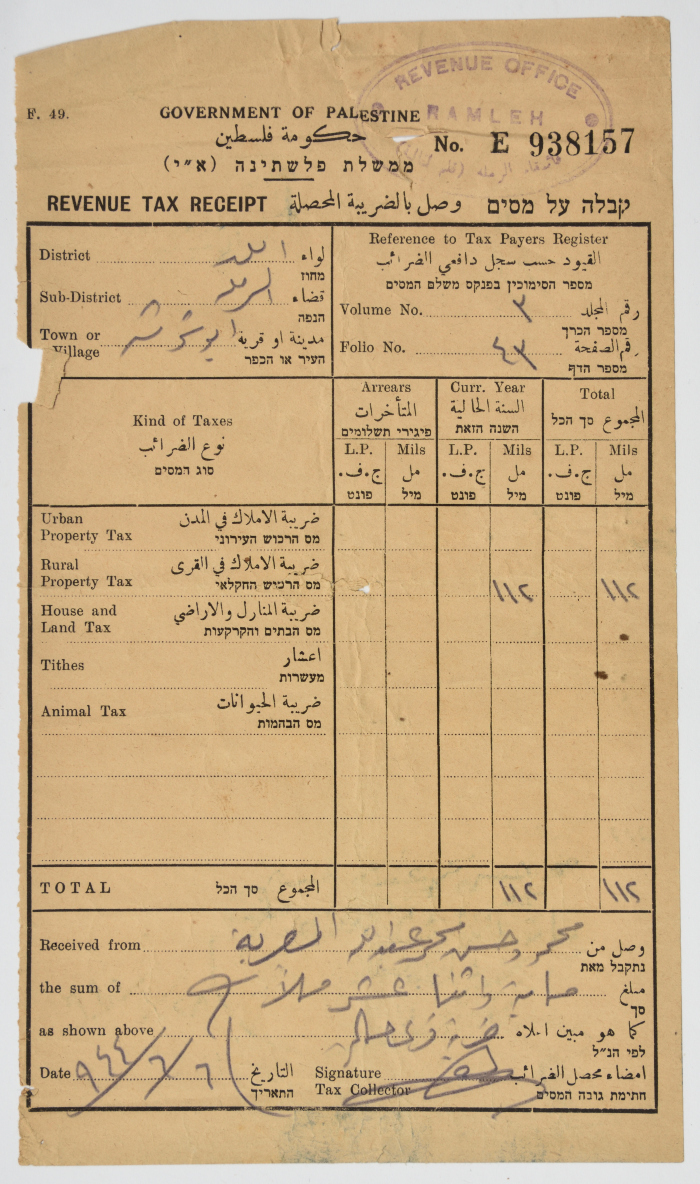 REVENUE OFFICE
RAMLEH
F. 49.
GOVERNMENT OF PALESTINE
حكومة فلسطين
No. E 938157
ממשלת פלשתינה (א״י)
REVENUE TAX RECEIPT وصل بالضريبة المحصلة קבלה על מסים
District اللد لواء
מחוז
Sub-District الرمله قضاء
הנפה
Town or Village ابو شوشه مدينة او قرية
העיר או הכפר
Reference to Tax Payers Register
القيود حسب سجل دافعي الضرائب
מספר הסימוכין בפנקס משלם המסים
Volume No. ٣ رقم المجلد
מספר הכרך
Folio No. ٤٣ رقم الصفحة
מספר הדף
Kind of Taxes
نوع الضرائب
סוג המסים
Arrears
المتأخرات
פיגירי תשלומים
Curr. Year
السنة الحالية
השנה הזאת
Total
المجموع סך הכל
L.P. Mils L.P. Mils L.P. Mils
ج.ف. مل ج.ف. مل ج.ف. مل
פונט מיל פונט מיל פונט מיל
Urban Property Tax ضريبة الاملاك في المدن
מס הרכוש העירוני
Rural Property Tax ضريبة الاملاك في القرى
מס הרכוש החקלאי
١١٢ ١١٢
House and Land Tax ضريبة المنازل والاراضي
מס הבתים והקרקעות
Tithes اعشار
מעשרות
Animal Tax ضريبة الحيوانات
מס הבהמות
TOTAL المجموع סך הכל ١١٢ ١١٢
Received from محمد حسن محمد وصل من
נתקבל מאת
the sum of ماية واثنا عشر ملا مبلغ
סך
as shown above كما هو مبين اعلاه
לפי הנ״ל
Date ٩٤٤/٦/٦ التاريخ
התאריך
Signature Tax Collector امضاء محصل الضرائب
חתימת גובה המסים